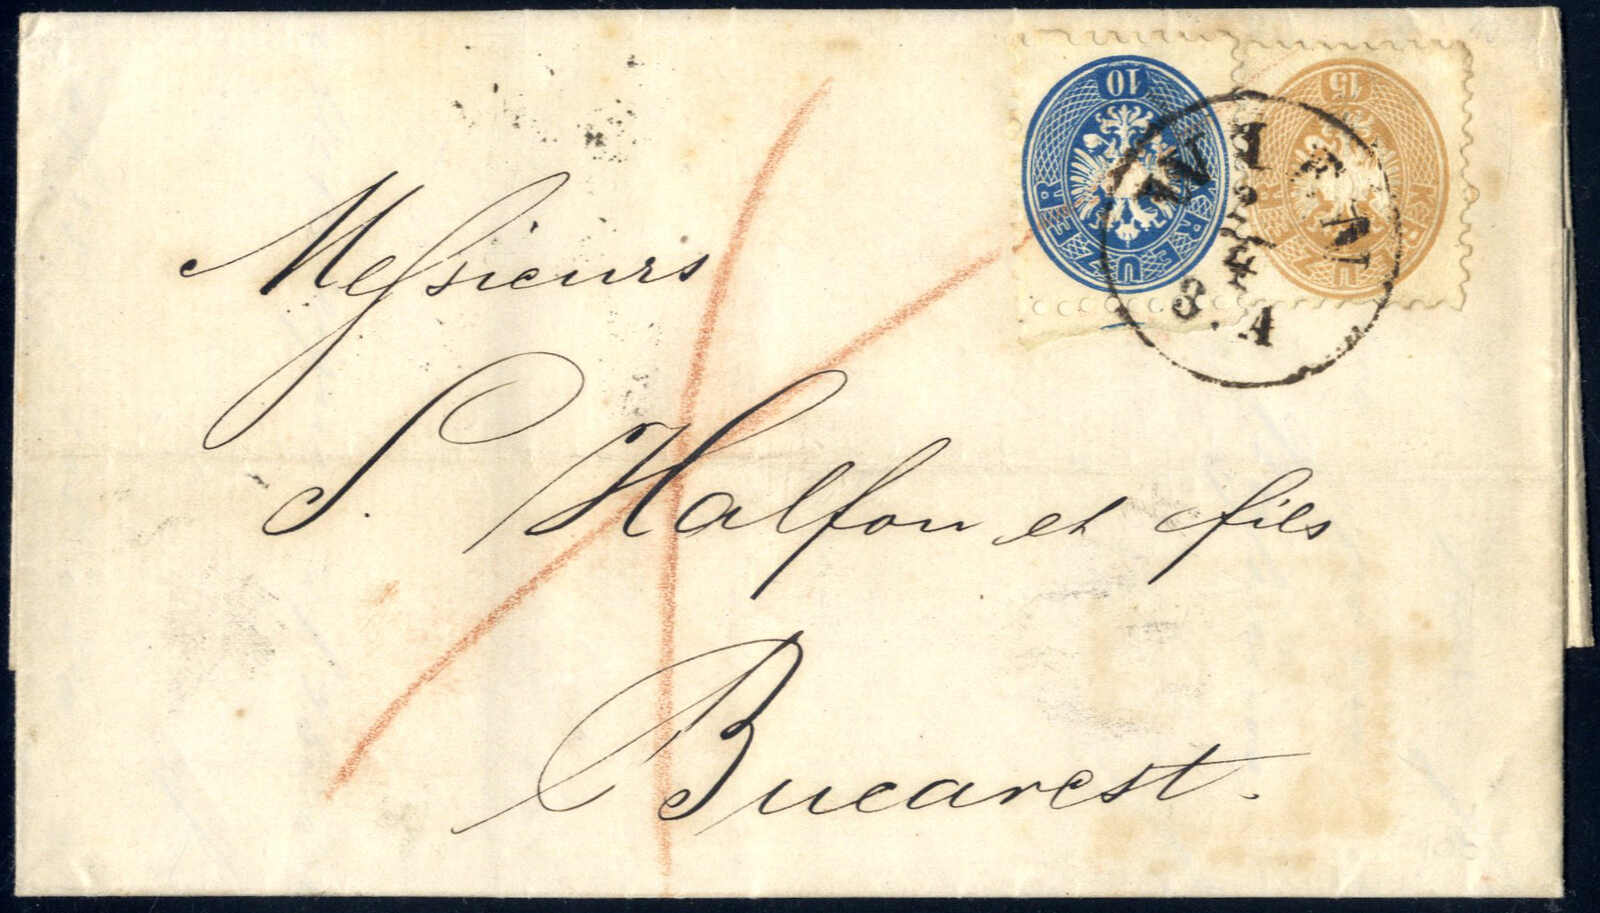 10 KREUZER
15 KREUZER
WIEN
3. A
Messieurs
S. Halfon et fils
Bucarest.